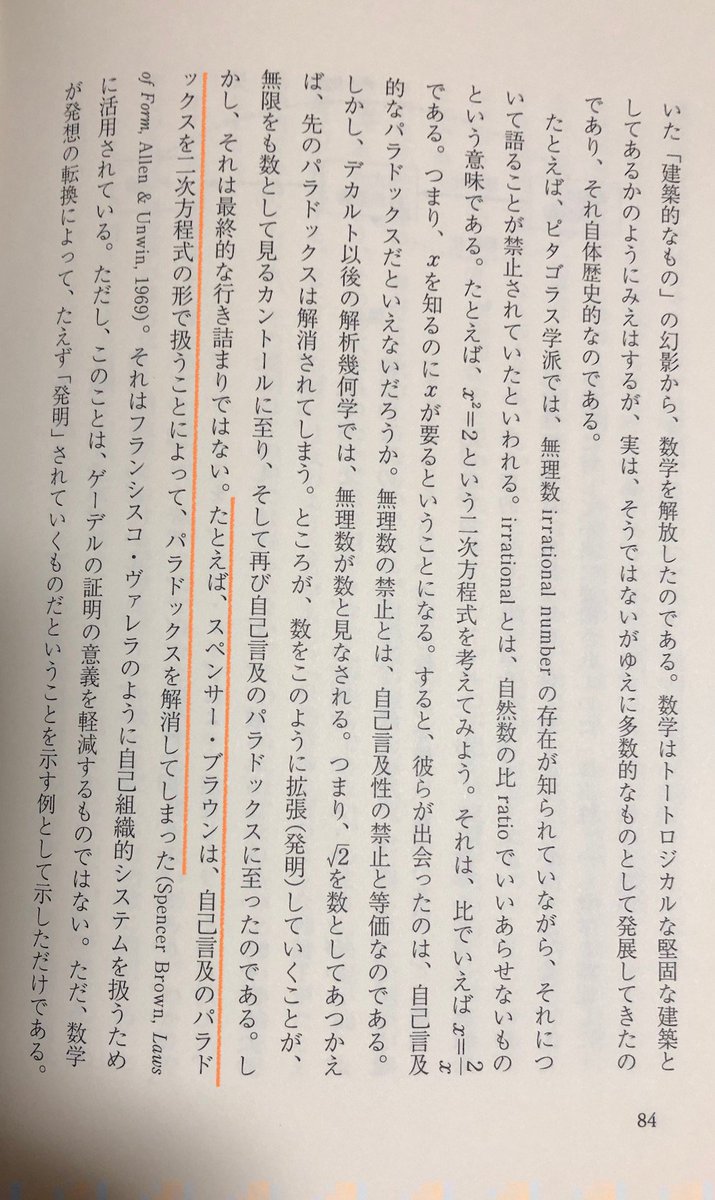 いた「建築的なもの」の幻影から、数学を解放したのである。数学はトートロジカルな堅固な建築と
してあるかのようにみえはするが、実は、そうではないがゆえに多数的なものとして発展してきたの
であり、それ自体歴史的なのである。
たとえば、ピタゴラス学派では、無理数 irrational number の存在が知られていながら、それにつ
いて語ることが禁止されていたといわれる。irrational とは、自然数の比 ratio でいいあらせないもの
という意味である。たとえば、x²=2 という二次方程式を考えてみよう。それは、比でいえば x=2/x
である。つまり、xを知るのにxが要るということになる。すると、彼らが出会ったのは、自己言及
的なパラドックスだといえないだろうか。無理数の禁止とは、自己言及性の禁止と等価なのである。
しかし、デカルト以後の解析幾何学では、無理数が数と見なされる。つまり、√2を数としてあつかえ
ば、先のパラドックスは解消されてしまう。ところが、数をこのように拡張(発明)していくことが、
無限をも数として見るカントールに至り、そして再び自己言及のパラドックスに至ったのである。し
かし、それは最終的な行き詰まりではない。たとえば、スペンサー・ブラウンは、自己言及のパラド
ックスを二次方程式の形で扱うことによって、パラドックスを解消してしまった(Spencer Brown, Laws
of Form, Allen & Unwin, 1969)。それはフランシスコ・ヴァレラのように自己組織的システムを扱うため
に活用されている。ただし、このことは、ゲーデルの証明の意義を軽減するものではない。ただ、数学
が発想の転換によって、たえず「発明」されていくものだということを示す例として示しただけである。
84